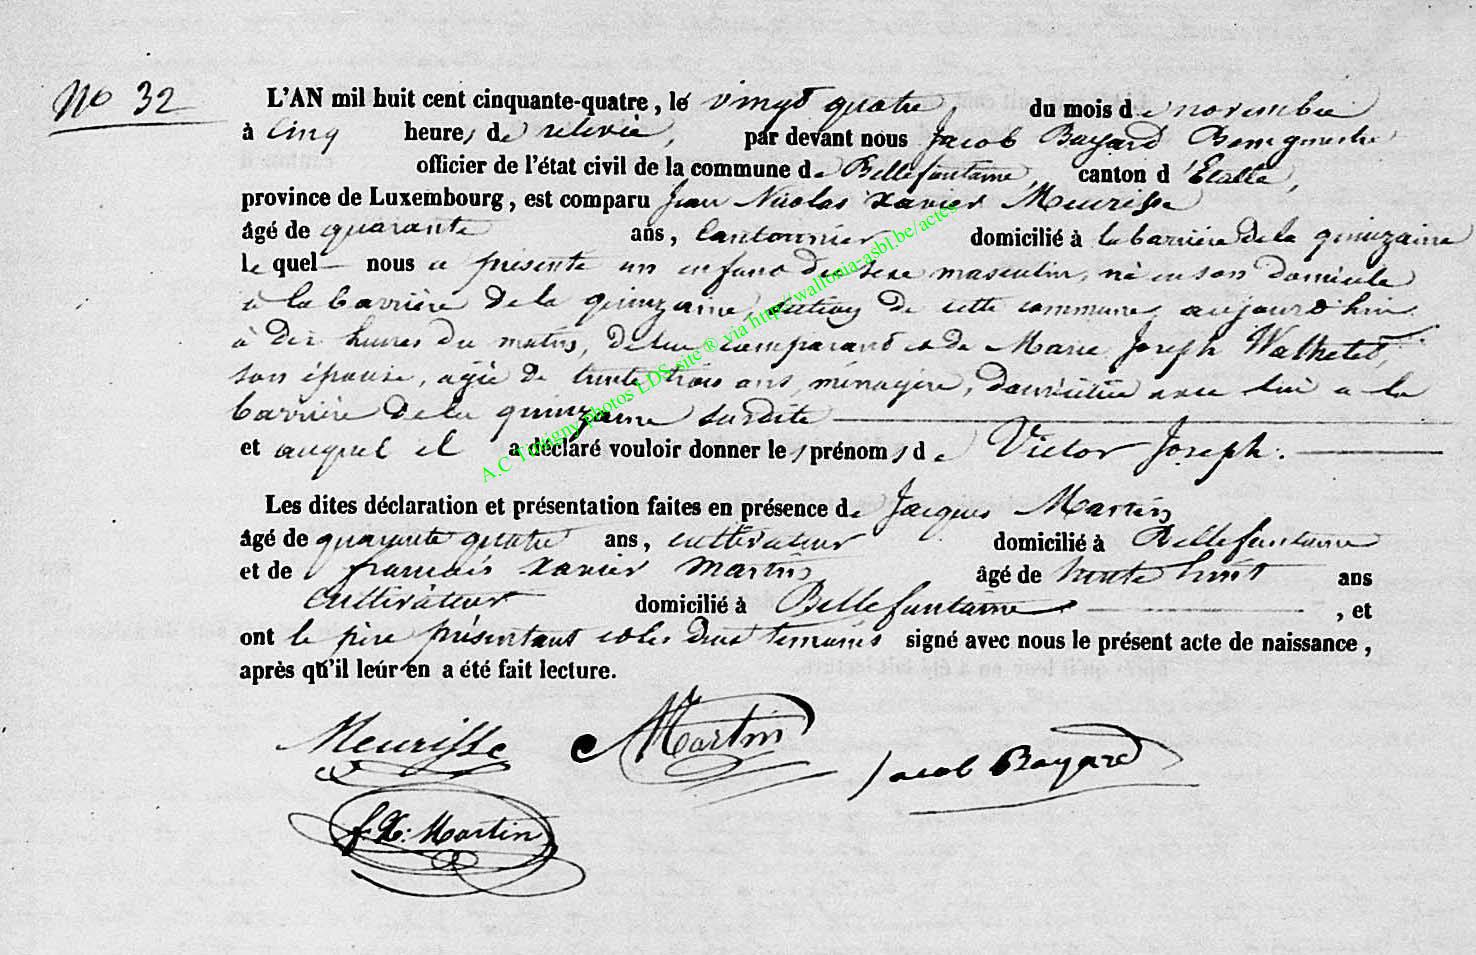 No 32
L'AN mil huit cent cinquante-quatre, le vingt quatre, du mois de novembre
à cinq heures de relevée, par devant nous Jacob Bayard Bourgmestre
officier de l'état civil de la commune de Bellefontaine, canton d'Etalle,
province de Luxembourg, est comparu Jean Nicolas Xavier Meurisse
âgé de quarante ans, cantonnier domicilié à la barrière de la quinzaine
le quel nous a présenté un enfant du sexe masculin, né en son domicile
à la barrière de la quinzaine, section de cette commune, aujourd'hui
à dix heures du matin, de lui comparant et de Marie Joseph Wathelet,
son épouse, agée de trente trois ans, ménagère, domiciliée avec lui a la
barrière de la quinzaine susdite
et auquel il a déclaré vouloir donner les prénoms de Victor Joseph.
Les dites déclaration et présentation faites en présence de Jacques Martin
âgé de quarante quatre ans, cultivateur domicilié à Bellefontaine
et de françois Xavier Martin âgé de trente huit ans
cultivateur domicilié à Bellefontaine , et
ont le père présentant et les deux temoins signé avec nous le présent acte de naissance,
après qu'il leur en a été fait lecture.
Meurisse Martin Jacob Bayard
f. X: Martin
A.C Tintigny photos LDS site ® via http://wallonia-asbl.be/actes